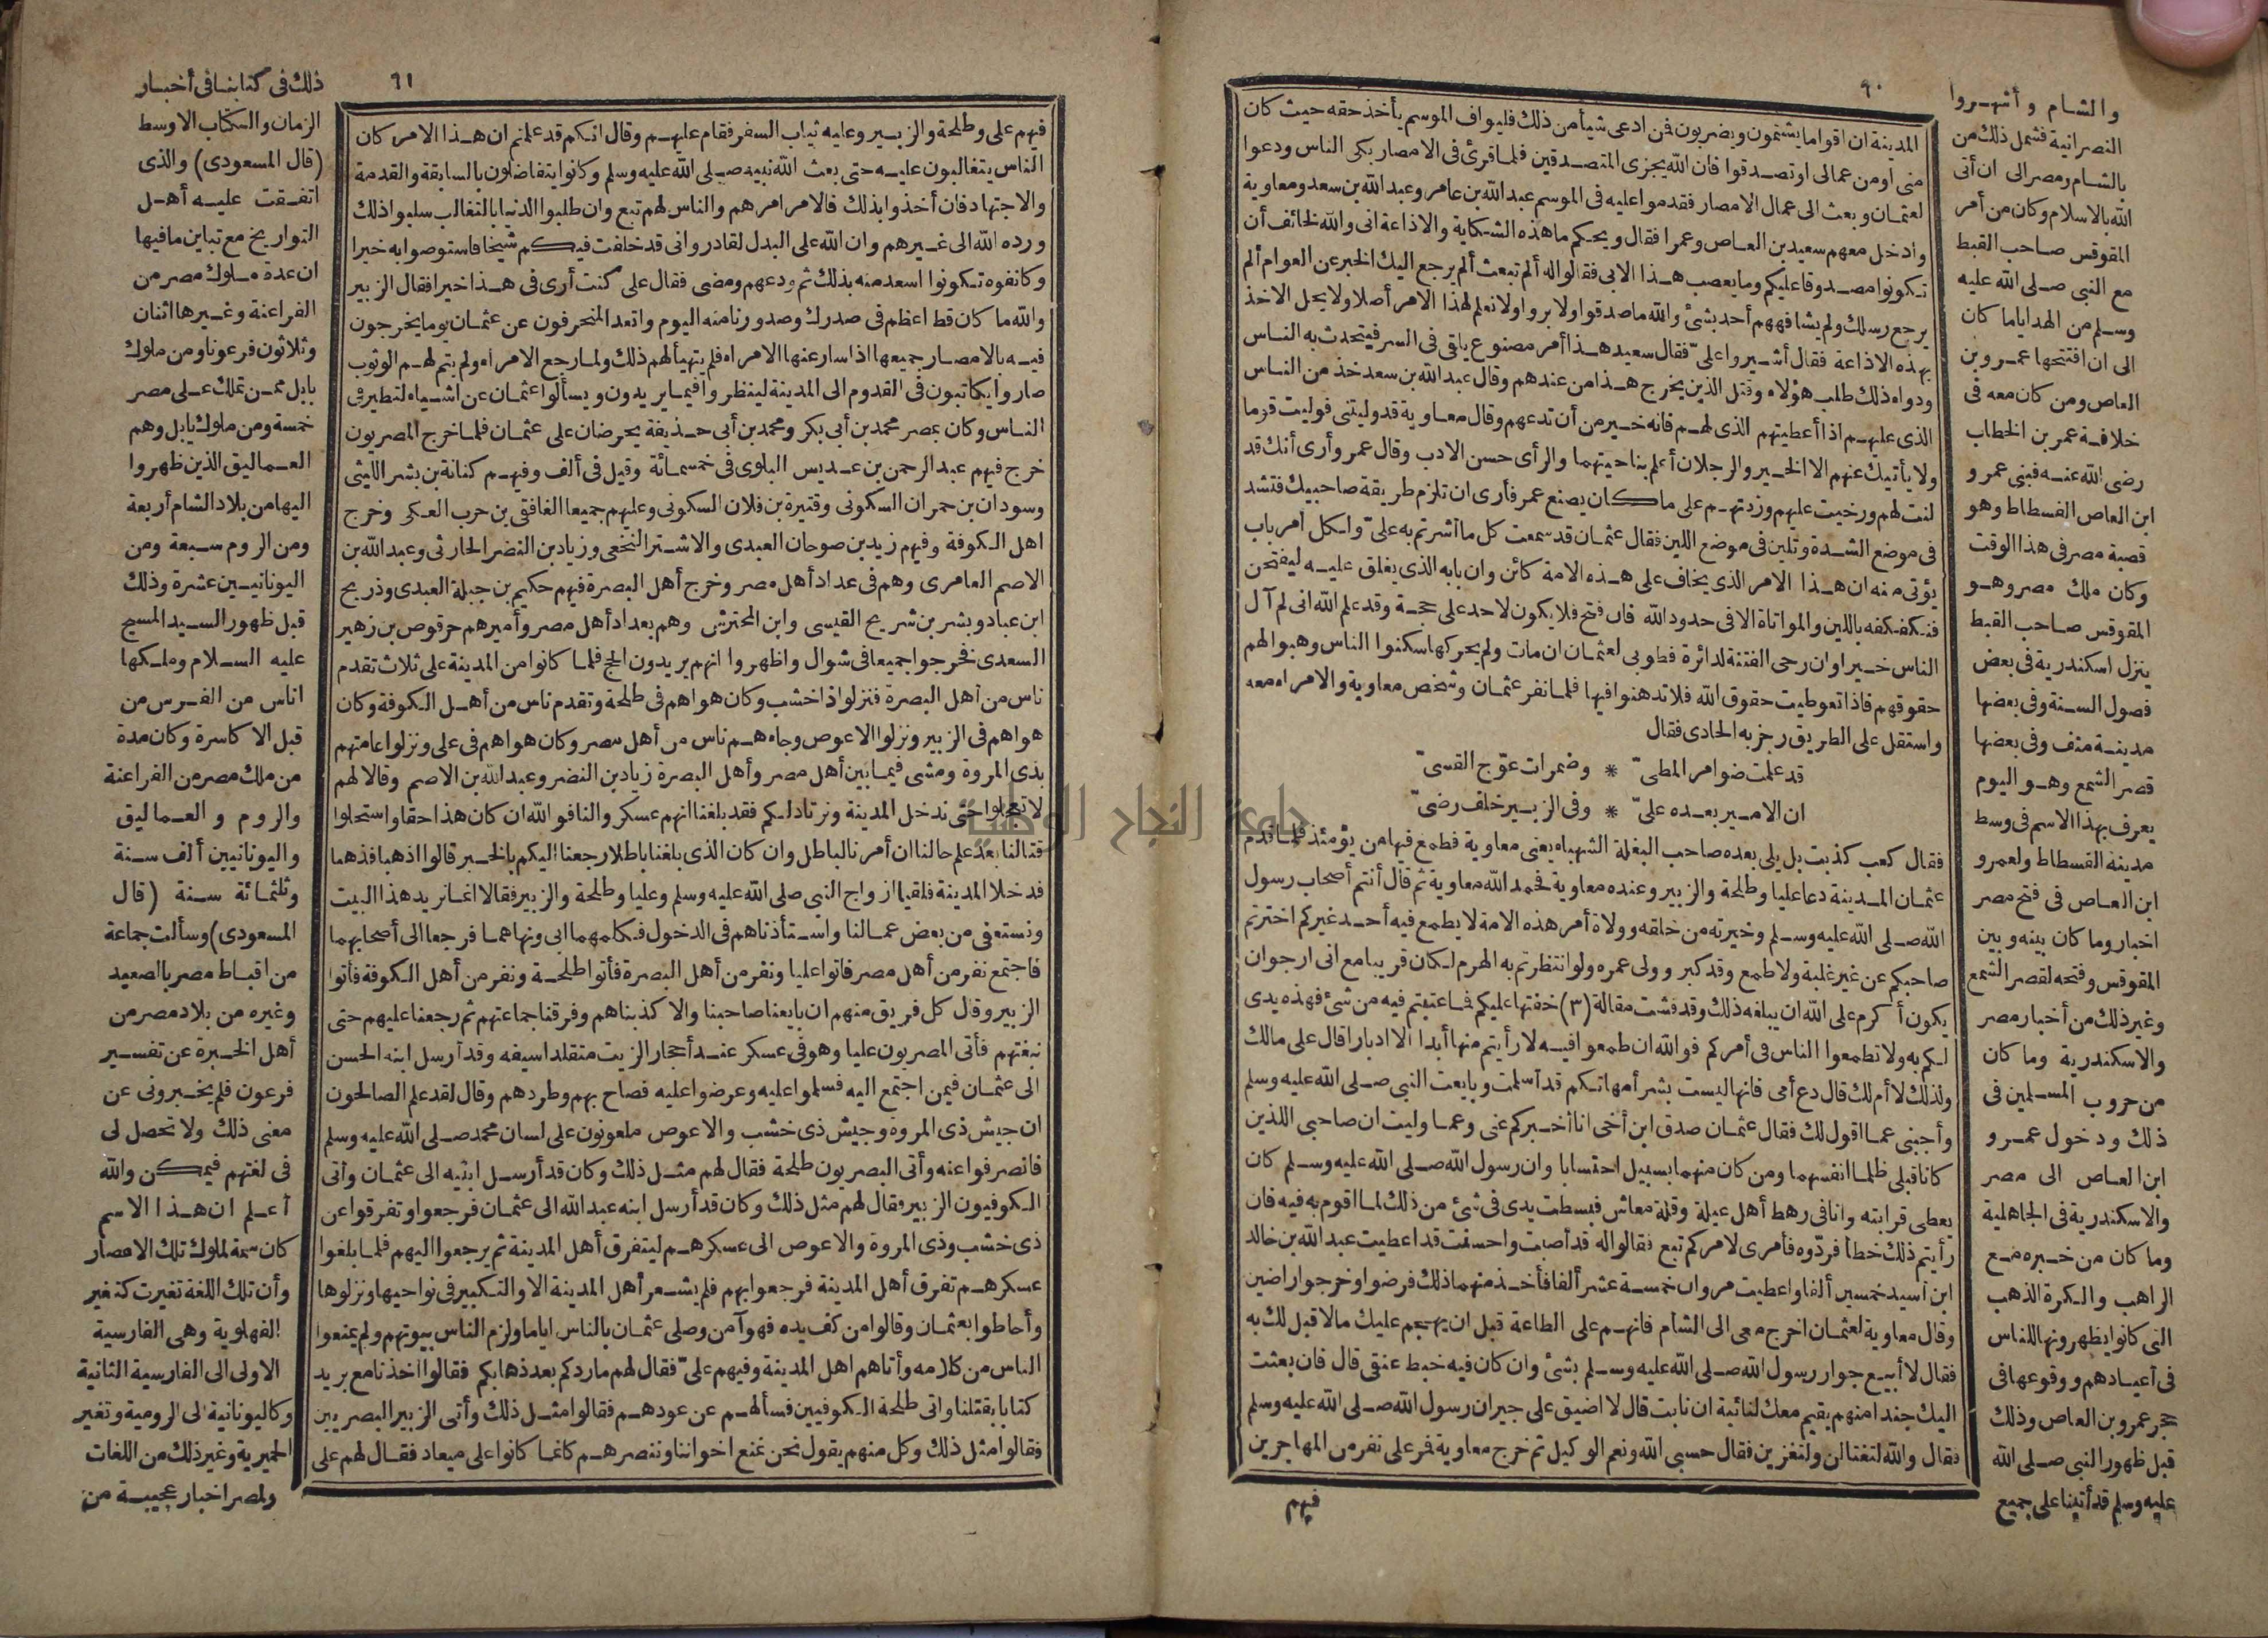 ٩٠
المدينة ان اقواما يشتمون ويضربون فمن ادعى شيأ من ذلك فليواف الموسم يأخذ حقه حيث كان
منى او من عمالى او تصدقوا فان الله يجزى المتصدقين فلما قرئ فى الامصار بكى الناس ودعوا
لعثمان وبعث الى عمال الامصار فقدموا عليه فى الموسم عبد الله بن عامر وعبد الله بن سعد ومعاوية
وادخل معهم سعيد بن العاص وعمرا فقال ويحكم ما هذه الشكاية والاذاعة انى والله لخائف أن
تكونوا مصدوقا عليكم وما يعصب هذا الا بى فقالوا له ألم تبعث ألم يرجع اليك الخبر عن العوام ألم
يرجع رسلك ولم يشافههم أحد بشئ والله ما صدقوا ولا بروا ولا نعلم لهذا الامر أصلا ولا يحل الاخذ
بهذه الاذاعة فقال أشيروا علىّ فقال سعيد هذا أمر مصنوع يلقى فى السر فيتحدث به الناس
ودواء ذلك طلب هؤلاء وقتل الذين يخرج هذا من عندهم وقال عبد الله بن سعد خذ من الناس
الذى عليهم اذا أعطيتهم الذى لهم فانه خير من أن تدعهم وقال معاوية قد وليتنى فوليت قوما
ولا يأتيك عنهم الا الخير والرجلان أعلم بناحيتهما والرأى حسن الادب وقال عمرو أرى أنك قد
لنت لهم ورخيت عليهم وزدتهم على ما كان يصنع عمر فأرى ان تلزم طريقة صاحبيك فتشد
فى موضع الشدة وتلين فى موضع اللين فقال عثمان قد سمعت كل ما أشرتم به علىّ ولكل أمر باب
يؤتى منه ان هذا الامر الذى يخاف على هذه الامة كائن وان بابه الذى يغلق عليه ليفتحن
فنكفكفه باللين والمواتاة الا فى حدود الله فان فتح فلا يكون لاحد على حجة وقد علم الله انى لم آل
الناس خيرا وان رحى الفتنة لدائرة فطوبى لعثمان ان مات ولم يحركها سكنوا الناس وهبوا لهم
حقوقهم فاذا تعوطيت حقوق الله فلا تدهنوا فيها فلما نفر عثمان وشخص معاوية والامراء معه
واستقل على الطريق رجز به الحادى فقال
قد علمت ضوامر المطىّ * وضمرات عوّج القسىّ
ان الامير بعده علىّ * وفى الزبير خلف رضىّ
فقال كعب كذبت بل يلى بعده صاحب البغلة الشهباء يعنى معاوية فطمع فيها من يؤمئذ فلما قدم
عثمان المدينة دعا عليا وطلحة والزبير وعنده معاوية فحمد الله معاوية ثم قال أنتم أصحاب رسول
الله صلى الله عليه وسلم وخيرته من خلقه وولاة أمر هذه الامة لا يطمع فيه أحد غيركم اخترتم
صاحبكم عن غير غلبة ولا طمع وقد كبر وولى عمره ولو انتظرتم به الهرم لكان قريبا مع انى ارجو ان
يكون أكرم على الله ان يبلغه ذلك وقد فشت مقالة (٣) خفتها عليكم فما عتبتم فيه من شئ فهذه يدى
لكم به ولا تطمعوا الناس فى أمركم فوالله ان طمعوا فيه لا رأيتم منها أبدا الا ادبارا قال على مالك
ولذلك لا أم لك قال دع أمى فانها ليست بشر أمهاتكم قد أسلمت وبايعت النبى صلى الله عليه وسلم
وأجبنى عما اقول لك فقال عثمان صدق ابن أخى انا أخبركم عنى وعما وليت ان صاحبى اللذين
كانا قبلى ظلما انفسهما ومن كان منهما بسبيل احتسابا وان رسول الله صلى الله عليه وسلم كان
يعطى قرابته وانا فى رهط أهل عيلة وقلة معاش فبسطت يدى فى شئ من ذلك لما اقوم به فيه فان
رأيتم ذلك خطأ فردّوه فأمرى لامركم تبع فقالوا له قد أصبت واحسنت قد اعطيت عبد الله بن خالد
ابن أسيد خمسين ألفا واعطيت مروان خمسة عشر ألفا فأخذ منهما ذلك فرضوا وخرجوا راضين
وقال معاوية لعثمان اخرج معى الى الشأم فانهم على الطاعة قبل ان يهجم عليك مالا قبل لك به
فقال لا أبيع جوار رسول الله صلى الله عليه وسلم بشئ وان كان فيه خبط عنقى قال فان بعثت
اليك جندا منهم يقيم معك لنائبة ان نابت قال لا اضيق على جيران رسول الله صلى الله عليه وسلم
فقال والله لتغتالن ولتغزين فقال حسبى الله ونعم الوكيل ثم خرج معاوية فمر على نفر من المهاجرين
فيهم
والشام وأشهروا
النصرانية فشمل ذلك من
بالشام ومصر الى ان أتى
الله بالاسلام وكان من أمر
المقوقس صاحب القبط
مع النبى صلى الله عليه
وسلم من الهدايا ما كان
الى ان افتتحها عمرو بن
العاص ومن كان معه فى
خلافة عمر بن الخطاب
رضى الله عنه فبنى عمرو
ابن العاص الفسطاط وهو
قصبة مصر فى هذا الوقت
وكان ملك مصر وهو
المقوقس صاحب القبط
ينزل اسكندرية فى بعض
فصول السنة وفى بعضها
مدينة منف وفى بعضها
قصر الشمع وهو اليوم
يعرف بهذا الاسم فى وسط
مدينة الفسطاط ولعمرو
ابن العاص فى فتح مصر
اخبار وما كان بينه وبين
المقوقس وفتحه لقصر الشمع
وغير ذلك من أخبار مصر
والاسكندرية وما كان
من حروب المسلمين فى
ذلك ودخول عمرو
ابن العاص الى مصر
والاسكندرية فى الجاهلية
وما كان من خبره مع
الراهب والكرة الذهب
التى كانوا يظهرونها للناس
فى أعيادهم ووقوعها فى
حجر عمرو بن العاص وذلك
قبل ظهور النبى صلى الله
عليه وسلم قد أتينا على جميع
٩١
فيهم على وطلحة والزبير وعليه ثياب السفر فقام عليهم وقال انكم قد علمتم ان هذا الامر كان
الناس يتغالبون عليه حتى بعث الله نبيه صلى الله عليه وسلم وكانوا يتفاضلون بالسابقة والقدمة
والاجتهاد فان أخذوا بذلك فالامر امرهم والناس لهم تبع وان طلبوا الدنيا بالتغالب سلبوا ذلك
ورده الله الى غيرهم وان الله على البدل لقادر وانى قد خلفت فيكم شيخا فاستوصوا به خيرا
وكانفوه تكونوا اسعد منه بذلك ثم ودعهم ومضى فقال على كنت أرى فى هذا خيرا فقال الزبير
والله ما كان قط اعظم فى صدرك وصدورنا منه اليوم واتعد المنحرفون عن عثمان يوما يخرجون
فيه بالامصار جميعها اذا سار عنها الامراء فلم يتهيأ لهم ذلك ولما رجع الامراء ولم يتم لهم الوثوب
صاروا يكاتبون فى القدوم الى المدينة لينظروا فيما يريدون ويسألوا عثمان عن اشياء لتطير فى
الناس وكان بمصر محمد بن أبى بكر ومحمد بن أبى حذيفة يحرضان على عثمان فلما خرج المصريون
خرج فيهم عبد الرحمن بن عديس البلوى فى خمسمائة وقيل فى ألف وفيهم كنانة بن بشر الليثى
وسودان بن حمران السكونى وقتيرة بن فلان السكونى وعليهم جميعا الغافقى بن حرب العكى وخرج
اهل الكوفة وفيهم زيد بن صوحان العبدى والاشتر النخعى وزياد بن النضر الحارثى وعبد الله بن
الاصم العامرى وهم فى عداد أهل مصر وخرج أهل البصرة فيهم حكيم بن جبلة العبدى وذريح
ابن عباد وبشر بن شريح القيسى وابن المحترش وهم بعداد أهل مصر وأميرهم حرقوص بن زهير
السعدى فخرجوا جميعا فى شوال واظهروا انهم يريدون الحج فلما كانوا من المدينة على ثلاث تقدم
ناس من أهل البصرة فنزلوا ذا خشب وكان هواهم فى طلحة وتقدم ناس من أهل الكوفة وكان
هواهم فى الزبير ونزلوا الاعوص وجاءهم ناس من أهل مصر وكان هواهم فى على ونزلوا عامتهم
بذى المروة ومشى فيما بين أهل مصر وأهل البصرة زياد بن النضر وعبد الله بن الاصم وقالا لهم
لا تعجلوا حتى ندخل المدينة ونرتاد لكم فقد بلغنا انهم عسكروا لنا فوالله ان كان هذا حقا واستحلوا
قتالنا بعد علم حالنا ان أمرنا لباطل وان كان الذى بلغنا باطلا رجعنا اليكم بالخبر قالوا اذهبا فذهبا
فدخلا المدينة فلقيا ازواج النبى صلى الله عليه وسلم وعليا وطلحة والزبير فقالا انما نريد هذا البيت
ونستعفى من بعض عمالنا واستأذناهم فى الدخول فكلهم ابى ونهاهما فرجعا الى أصحابهما
فاجتمع نفر من أهل مصر فاتوا عليا ونفر من أهل البصرة فأتوا طلحة ونفر من أهل الكوفة فأتوا
الزبير وقال كل فريق منهم ان بايعنا صاحبنا والا كذبناهم وفرقنا جماعتهم ثم رجعنا عليهم حتى
نبغتهم فأتى المصريون عليا وهو فى عسكر عند أحجار الزيت متقلدا سيفه وقد أرسل ابنه الحسن
الى عثمان فيمن اجتمع اليه فسلموا عليه وعرضوا عليه فصاح بهم وطردهم وقال لقد علم الصالحون
ان جيش ذى المروه وجيش ذى خشب والاعوص ملعونون على لسان محمد صلى الله عليه وسلم
فانصرفوا عنه وأتى البصريون طلحة فقال لهم مثل ذلك وكان قد أرسل ابنيه الى عثمان وأتى
الكوفيون الزبير فقال لهم مثل ذلك وكان قد أرسل ابنه عبد الله الى عثمان فرجعوا وتفرقوا عن
ذى خشب وذى المروة والاعوص الى عسكرهم ليتفرق أهل المدينة ثم يرجعوا اليهم فلما بلغوا
عسكرهم تفرق أهل المدينة فرجعوا بهم فلم يشعر أهل المدينة الا والتكبير فى نواحيها ونزلوها
وأحاطوا بعثمان وقالوا من كف يده فهو آمن وصلى عثمان بالناس اياما ولزم الناس بيوتهم ولم يمنعوا
الناس من كلامه وأتاهم اهل المدينة وفيهم علىّ فقال لهم ما ردكم بعد ذهابكم فقالوا اخذنا مع بريد
كتابا بقتلنا واتى طلحة الكوفيين فسألهم عن عودهم فقالوا مثل ذلك وأتى الزبير البصريين
فقالوا مثل ذلك وكل منهم يقول نحن نمنع اخواننا وننصرهم كانما كانوا على ميعاد فقال لهم على
ذلك فى كتابنا فى أخبار
الزمان والكتاب الاوسط
(قال المسعودى) والذى
اتفقت عليه أهل
التواريخ مع تباين ما فيها
ان عدة ملوك مصر من
الفراعنة وغيرها اثنان
وثلاثون فرعونا ومن ملوك
بابل ممن تملك على مصر
خمسة ومن ملوك بابل وهم
العماليق الذين ظهروا
اليها من بلاد الشام أربعة
ومن الروم سبعة ومن
اليونانيين عشرة وذلك
قبل ظهور السيد المسيح
عليه السلام وملكها
اناس من الفرس من
قبل الاكاسرة وكان مدة
من ملك مصر من الفراعنة
والروم والعماليق
واليونانيين ألف سنة
وثلثمائة سنة (قال
المسعودى) وسألت جماعة
من اقباط مصر بالصعيد
وغيره من بلاد مصر من
أهل الخبرة عن تفسير
فرعون فلم يخبرونى عن
معنى ذلك ولا تحصل لى
فى لغتهم فيمكن والله
أعلم ان هذا الاسم
كان سمة لملوك تلك الامصار
وأن تلك اللغة تغيرت كتغير
الفهلوية وهى الفارسية
الاولى الى الفارسية الثانية
وكاليونانية الى الرومية وتغير
الحميرية وغير ذلك من اللغات
ولمصر اخبار عجيبة من
جامعة النجاح الوطنية